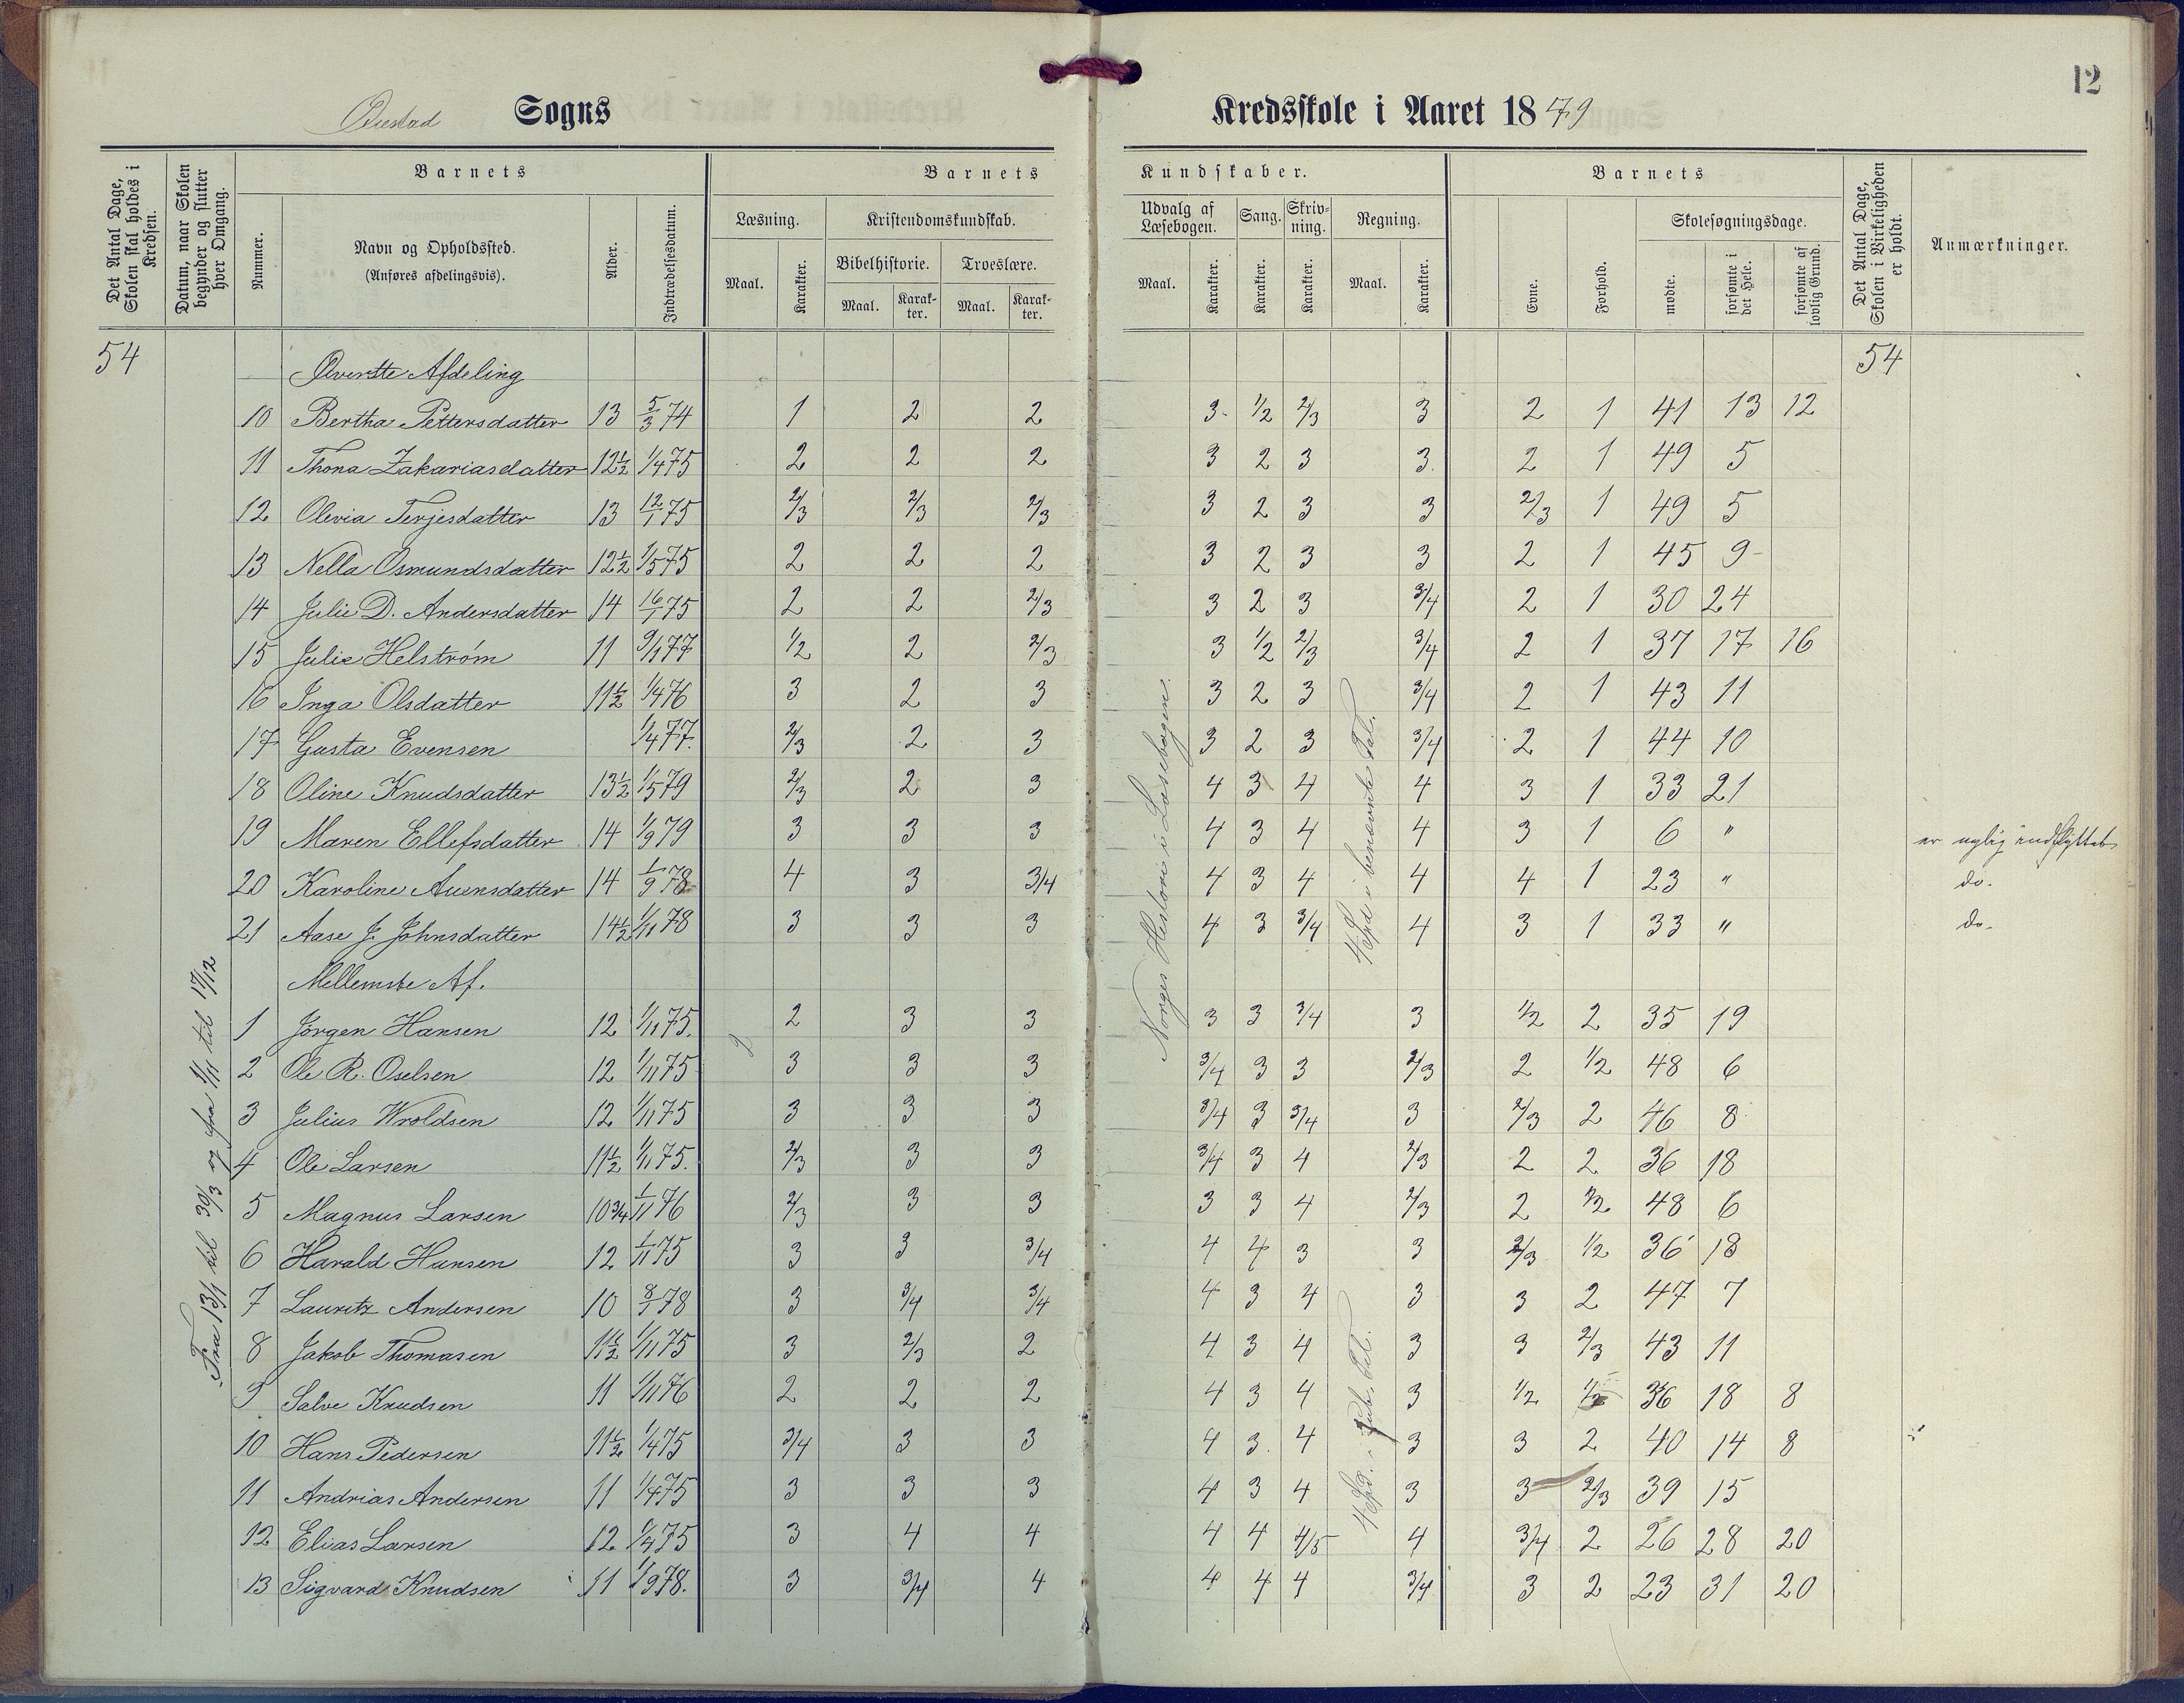 12
Sogns Kredsskole i Aaret 1879
Det Antal Dage, Skolen skal holdes i Kredsen.
Datum, naar Skolen begynder og slutter hver Omgang.
Barnets
Nummer.
Navn og Opholdssted.
(Anføres afdelingsvis).
Alder.
Indtrædelsesdatum.
Barnets Kundskaber.
Læsning.
Maal. Karakter.
Kristendomskundskab.
Bibelhistorie. Troeslære.
Maal. Karakter. Maal. Karakter.
Udvalg af Læsebogen. Sang. Skrivning. Regning.
Maal. Karakter. Karakter. Karakter. Maal. Karakter.
Barnets
Evne. Forhold.
Skolesøgningsdage.
mødte. forsømte i det Hele. forsømte af lovlig Grund.
Det Antal Dage, Skolen i Virkeligheden er holdt.
Anmærkninger.
54 Øverste Afdeling 54
10 Bertha Pettersdatter 13 5/3 74 1 2 2 3 1/2 2/3 3 2 1 41 13 12
11 Thona Zakariasdatter 12½ 1/4 75 2 2 2 3 2 3 3 2 1 49 5
12 Olevia Terjesdatter 13 12/1 75 2/3 2/3 2/3 3 2 3 3 2/3 1 49 5
13 Nella Osmundsdatter 12½ 1/5 75 2 2 2 3 2 3 3 2 1 45 9
14 Julie D. Andersdatter 14 16/1 75 2 2 2/3 3 2 3 3/4 2 1 30 24
15 Julie Helstrøm 11 9/1 77 1/2 2 2/3 3 1/2 2/3 3/4 2 1 37 17 16
16 Inga Olsdatter 11½ 1/4 76 3 2 3 3 2 3 3/4 2 1 43 11
17 Gusta Evensen 1/4 77. 2/3 2 3 3 2 3 3/4 2 1 44 10
18 Oline Knudsdatter 13½ 1/5 79 2/3 2 3 4 3 4 4 3 1 33 21
19 Maren Ellefsdatter 14 1/9 79 3 3 3 4 3 4 4 3 1 6 " er nylig indflyttet
20 Karoline Auensdatter 14 1/9 78 4 3 3/4 4 3 4 4 4 1 23 " do.
21 Aase J. Johnsdatter 14½ 1/11 78 3 3 3 4 3 3/4 4 3 1 33 " do.
Mellemste Af.
1 Jørgen Hansen 12 1/11 75. 2 3 3 3 3 3/4 3 1/2 2 35 19
2 Ole R. Oselsen 12 1/11 75 3 3 3 3/4 3 3 2/3 2 1/2 48 6
3 Julius Wroldsen 12 1/11 75 3 3 3 3/4 3 3/4 3 2/3 2 46 8
4 Ole Larsen 11½ 1/11 75. 2/3 3 3 3/4 3 4 2/3 2 2 36 18
5 Magnus Larsen 10¾ 1/11 76 2/3 3 3 3 3 4 2/3 2 1/2 48 6
6 Harald Hansen 12 1/11 75 3 3 3/4 4 4 3 3 2/3 1/2 36 18
7 Lauritz Andersen 10 8/1 78 3 3/4 3/4 4 3 4 3 3 2 47 7
8 Jakob Thomasen 11½ 1/11 75 3 2/3 2 4 3 4 3 3 2/3 43 11
9 Salve Knudsen 11 1/11 76 2 2 2 4 3 4 3 1/2 1/2 36 18 8
10 Hans Pedersen 11½ 1/4 75 3/4 3 3 4 3. 4 3 3 2 40 14 8
11 Andrias Andersen 11 1/4 75 3 3 3 4 3 4 3 3 2/3 39 15
12 Elias Larsen 12 1/4 75 3 4 4 4 4 4/5 4 3/4 2 26 28 20
13 Sigvard Knudsen 11 1/9 78. 3 3/4 4 4 4 4 3/4 3 2 23 31 20
Fra 13/1 til 30/3 og fra 1/11 til 17/12
Norges Historie i Læsebogen.
4 Spd. i benævnte Tal.
4 Spd. i Tal.